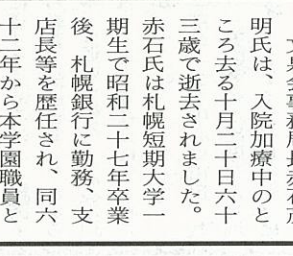 明氏は、入院加療中のと
ころ去る十月二十日六十
三歳で逝去されました。
赤石氏は札幌短期大学一
期生で昭和二十七年卒業
後、札幌銀行に勤務、支
店長等を歴任され、同六
十二年から本学園職員と